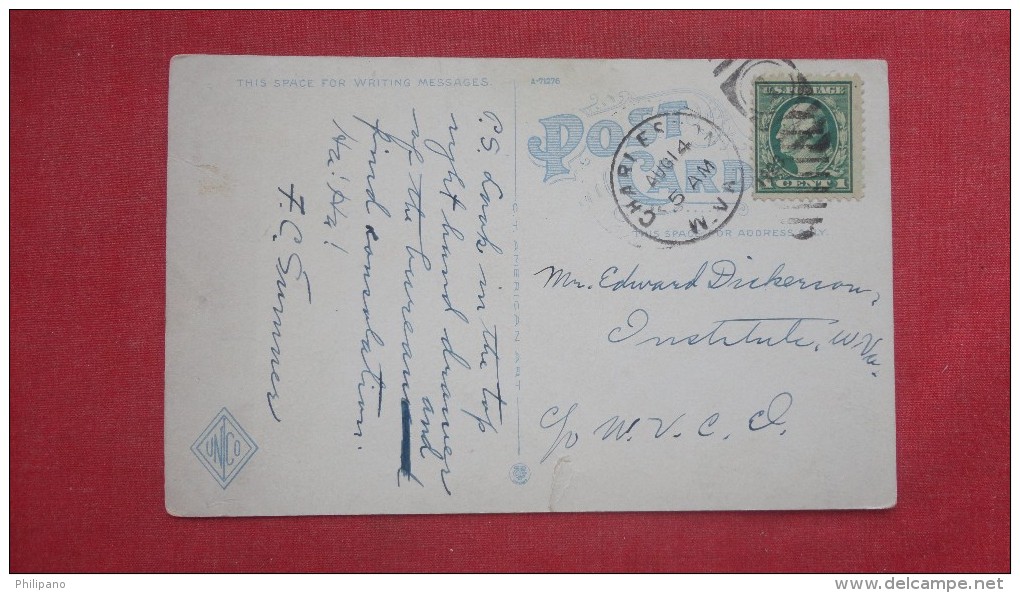 THIS SPACE FOR WRITING MESSAGES
P.S. Look in the top
right hand drawer
of the bureau and
find consolation.
Ha! Ha!
F. C. Sumner
UNICO
C. T. AMERICAN ART
A-71276
POST
CARD
THIS SPACE FOR ADDRESS ONLY.
CHARLESTON
AUG 14
5 AM
W.VA.
U.S. POSTAGE
1 CENT 1
Mr. Edward Dickerson,
Institute, W Va.
c/o W. V. C. I.
Philipano
www.delcampe.net